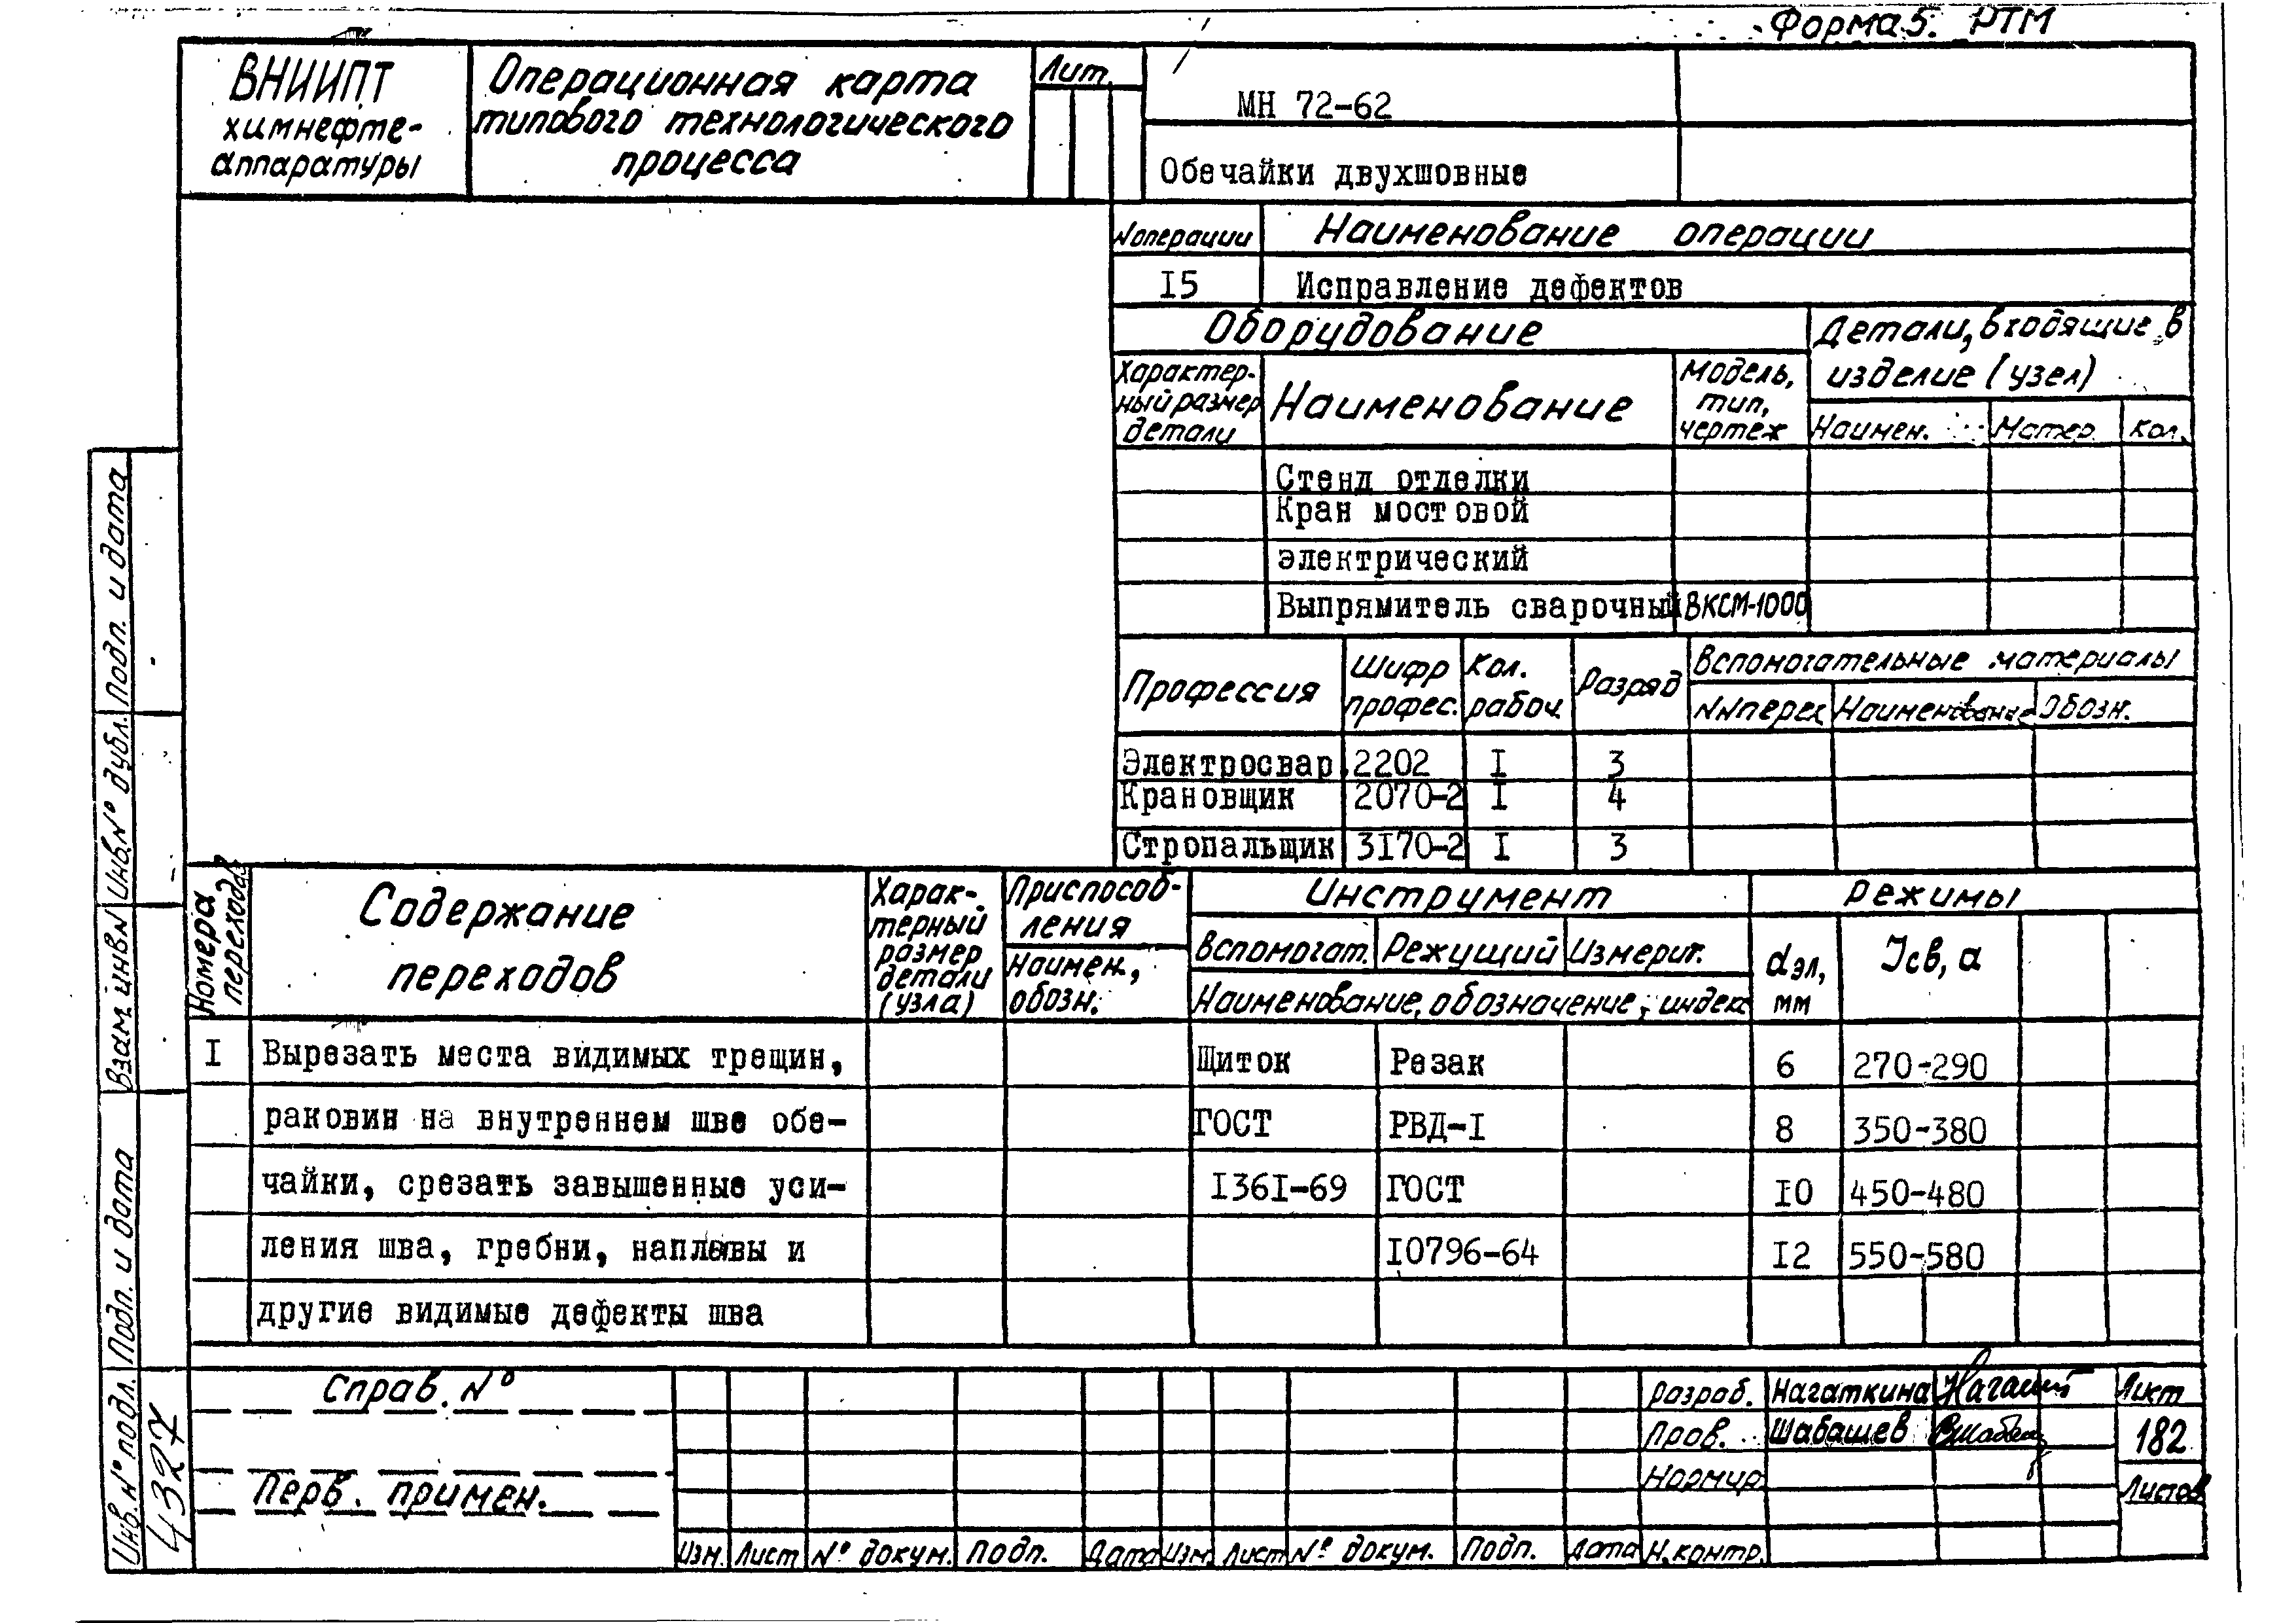 Форма 5. РТМ
ВНИИПТ
химнефте-
аппаратуры
Операционная карта
типового технологического
процесса
Лит.
МН 72-62
Обечайки двухшовные
N операции
Наименование операции
I5
Исправление дефектов
Оборудование
Детали, входящие в
изделие (узел)
Характер-
ный размер
детали
Наименование
Модель,
тип,
чертеж
Наимен.
Матер.
Кол.
Стенд отделки
Кран мостовой
электрический
Выпрямитель сварочный ВКСМ-1000
Профессия
Шифр
профес.
Кол.
рабоч.
Разряд
Вспомогательные материалы
NN перех
Наименование
Обозн.
Электросвар. 2202 I 3
Крановщик 2070-2 I 4
Стропальщик 3I70-2 I 3
Номера
переходов
Содержание
переходов
Харак-
терный
размер
детали
(узла)
Приспособ-
ления
Наимен.,
обозн.
Инструмент
Вспомогат. Режущий Измерит.
Наименование, обозначение, индекс
Режимы
dэл,
мм
Iсв, а
I Вырезать места видимых трещин, Щиток Резак 6 270-290
раковин на внутреннем шве обе- ГОСТ РВД-I 8 350-380
чайки, срезать завышенные уси- I36I-69 ГОСТ I0 450-480
ления шва, гребни, наплывы и I0796-64 I2 550-580
другие видимые дефекты шва
Справ. №
Перв. примен.
Изм. Лист № докум. Подп. Дата Изм. Лист № докум. Подп. Дата
Разраб. Нагаткина
Пров. Шабашев
Нормир.
Н.контр.
Лист
182
Листов
Подп. и дата
Инв. № дубл.
Взам. инв №
Подп. и дата
Инв. № подл.
4327